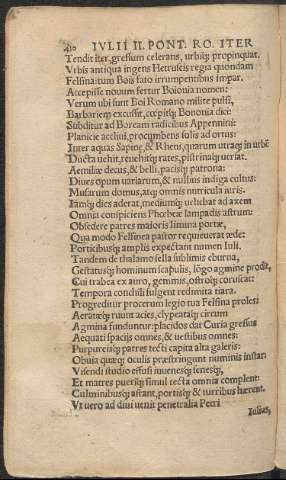 IVLII II. PONT. RO. ITER
Tendit iter, gressum celerans, urbiq; propinquat.
Vrbis antiqua ingens Hetruscis regia quondam
Felsina: tum Bois fato irrumpentibus impar.
Accepisse nouum fertur Boionia nomen:
Verum ubi sunt Boi Romano milite pulsi,
Barbariem excussit, cœpitq; Bononia dici:
Subditur ad Boream radicibus Appennini:
Planicie accliui, procumbens solis ad ortus:
Inter aquas Sapinę, & Rheni, quarum utraq; in urbẽ
Ducta uehit, reuehitq; rates, pistrinaq; uersat.
Aemiliæ decus, & belli, pacisq; patrona:
Diues opum uariarum, & nullius indiga cultus:
Musarum domus, atq; omnis nutricula iuris.
Iamq; dies aderat, mediumq; uehebat ad axem
Omnia conspiciens Phœbeæ lampadis astrum:
Obsedere patres maioris limina portæ,
Qua modo Felsinea pastor requieuerat æde:
Porticibusq; amplis expectant numen Iuli.
Tandem de thalamo sella sublimis eburna,
Gestatusq; hominum scapulis, lõgo agmine prodit,
Cui trabea ex auro, gemmis, ostroq; coruscat:
Tempora conditi fulgent redimita tiara.
Progreditur procerum legio tua Felsina proles:
Aeratęq; ruunt acies, clypeataq; circum
Agmina funduntur: placidos dat Curia gressus
Aequati spacijs omnes, & uestibus omnes:
Purpureisq; patres tecti capita alta galeris:
Obuia quæq; oculis præstringunt numinis instar:
Visendi studio effusi iuuenesq; senesq;,
Et matres puerisq; simul tecta omnia complent:
Culminibusq; astant, portisq; & turribus hærent.
Vt uero ad diui uenit penetralia Petri
Iulius,